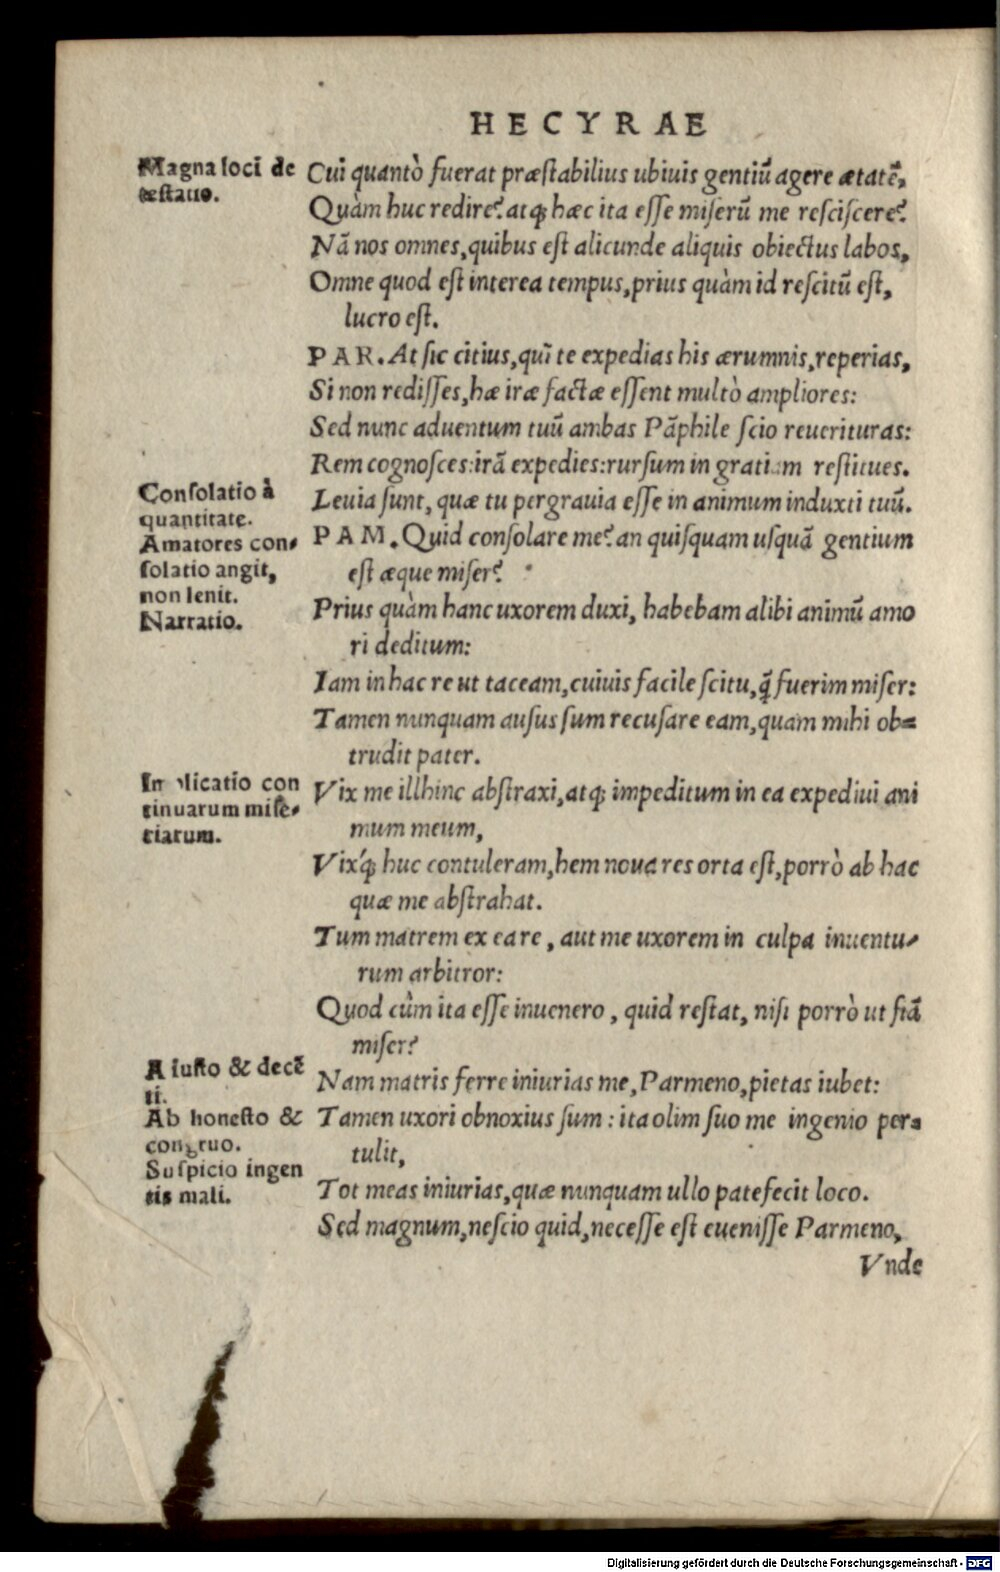 HECYRAE
Magna loci de
testatio.
Cui quantò fuerat præstabilius ubiuis gentiū agere ætatē,
Quàm huc redire? atq; hæc ita esse miserū me resciscere?
Nā nos omnes, quibus est alicunde aliquis obiectus labos,
Omne quod est interea tempus, prius quàm id rescitū est,
lucro est.
PAR. At sic citius, quî te expedias his ærumnis, reperias,
Si non redisses, hæ iræ factæ essent multò ampliores:
Sed nunc aduentum tuū ambas Pāphile scio reuerituras:
Rem cognosces: irā expedies: rursum in gratiam restitues.
Consolatio à
quantitate.
Leuia sunt, quæ tu pergrauia esse in animum induxti tuū.
Amatores con-
solatio angit,
non lenit.
PAM. Quid consolare me? an quisquam usquā gentium
est æque miser?
Narratio.
Prius quàm hanc uxorem duxi, habebam alibi animū amo
ri deditum:
Iam in hac re ut taceam, cuiuis facile scitu, q̃ fuerim miser:
Tamen nunquam ausus sum recusare eam, quam mihi ob-
trudit pater.
Implicatio con
tinuarum mise-
riarum.
Vix me illhinc abstraxi, atq; impeditum in ea expediui ani
mum meum,
Vix'q; huc contuleram, hem noua res orta est, porrò ab hac
quæ me abstrahat.
Tum matrem ex ea re, aut me uxorem in culpa inuentu-
rum arbitror:
Quod cùm ita esse inuenero, quid restat, nisi porrò ut fiā
miser?
A iusto & decē
ti.
Nam matris ferre iniurias me, Parmeno, pietas iubet:
Ab honesto &
congruo.
Tamen uxori obnoxius sum: ita olim suo me ingenio per-
tulit,
Suspicio ingen
tis mali.
Tot meas iniurias, quæ nunquam ullo patefecit loco.
Sed magnum, nescio quid, necesse est euenisse Parmeno,
Vnde
Digitalisierung gefördert durch die Deutsche Forschungsgemeinschaft - DFG